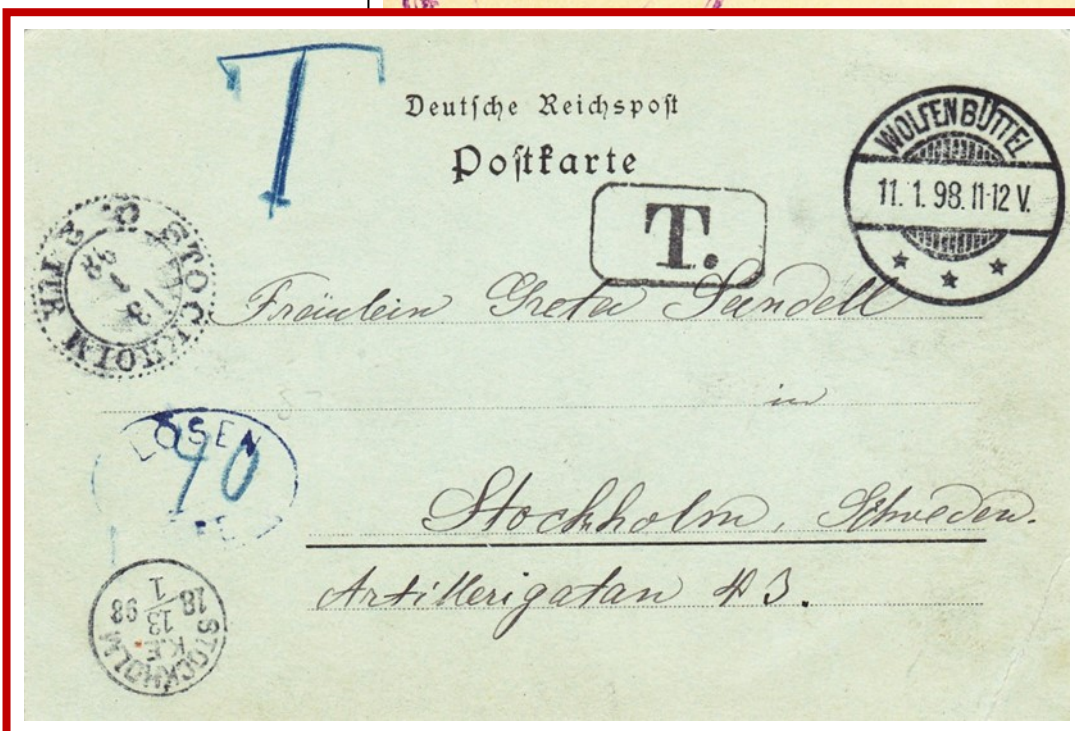 T
Deutsche Reichspost
Postkarte
WOLFENBÜTTEL
11. 1. 98. 11-12 V.
T.
STOCKHOLM 2 TUR. C.
13
1
98
Fräulein Greta Sandell
in
LÖSEN
10
Stockholm, Schweden.
Artillerigatan 43.
STOCKHOLM
K.E.
13
1
18 98